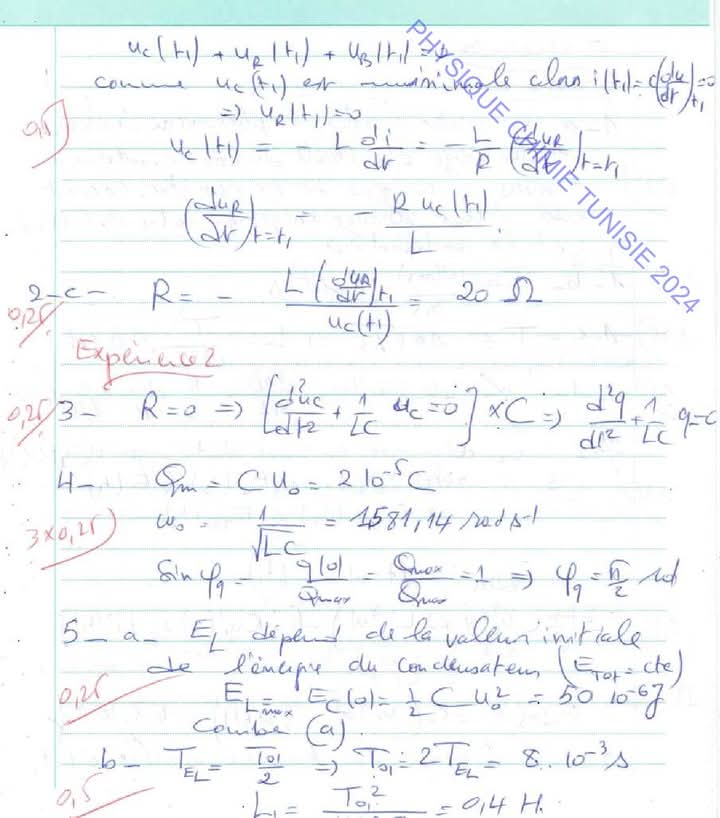 u_C(t₁) + u_R(t₁) + u_B(t₁) = 0
comme u_C(t₁) est maximale alors i(t₁) = C(du/dt)_t₁ = 0
⇒ u_R(t₁) = 0
0,5
u_C(t₁) = - L di/dt = - L/R (du_R/dt)_t=t₁
(du_R/dt)_t=t₁ = - R u_C(t₁)/L
2-c- R = - L(du_R/dt)_t₁ / u_C(t₁) = 20 Ω
0,25
Expérience 2
0,25 3- R = 0 ⇒ [d²u_C/dt² + 1/LC u_C = 0] × C ⇒ d²q/dt² + 1/LC q = 0
4- Q_m = C U₀ = 2 10⁻⁵ C
ω₀ = 1/√LC = 1581,14 rad s⁻¹
3 x 0,25
Sin φ_q = q(0)/Q_max = Q_max/Q_max = 1 ⇒ φ_q = π/2 rad
5- a- E_L dépend de la valeur initiale
de l'énergie du condensateur (E_TOT = cte)
0,25
E_Lmax = E_C(0) = 1/2 C U₀² = 50 10⁻⁶ J
Courbe (a).
b- T_EL = T₀₁/2 ⇒ T₀₁ = 2T_EL = 8. 10⁻³ s
0,5
L₁ = T₀₁² = 0,4 H.
PHYSIQUE CHIMIE TUNISIE 2024